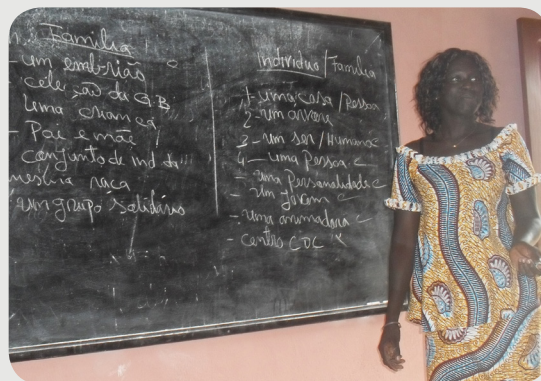 Familia
- um embrião
celeção da G.B
uma criança
- Pai e mãe
conjunto de ind da
mesma raca
um grupo solidário
Individuo / Familia
1 - uma casa / Pessoa
2 - um arvore
3 - um ser / Humano
4 - uma Pessoa
- uma Personalidade
- um Jovem
- uma animadora
- centro COC